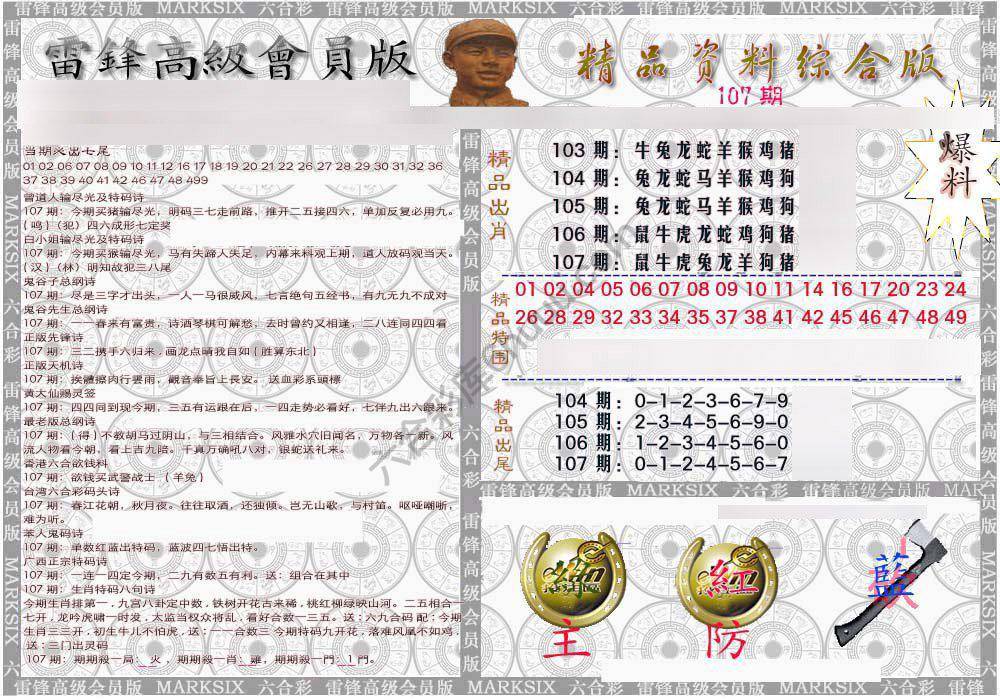 雷锋高级会员版 MARKSIX 六合彩 雷锋高级会员版 MARKSIX 六合彩 雷锋高级会员版
雷鋒高級會員版
精品资料综合版
107期
爆料
当期灵出七尾
01 02 06 07 08 09 10 11 12 16 17 18 19 20 21 22 26 27 28 29 30 31 32 36
37 38 39 40 41 42 46 47 48 499
曾道人输尽光及特码诗
107期：今期买猪输尽光，明码三七走前路，推开二五接四六，单加反复必用九。
{鸣}（犯）四六成形七定奖
白小姐输尽光及特码诗
107期：今期买猴输尽光，马有失蹄人失足，内幕来料观上期，道人放码观当天。
{汉}（林）明知故犯三八尾
鬼谷子总纲诗
107期：尽是三字才出头，一人一马很威风，七言绝句五经书，有九无九不成对
鬼谷先生总纲诗
107期：一一春来有富贵，诗酒琴棋可解愁，去时曾约又相逢，二八连同四四看
正版先锋诗
107期：三二携手六归来，画龙点睛我自如{胜算东北}
正版天机诗
107期：挨體擦肉行雲雨，觀音奉旨上長安。送血彩系頭標
黄大仙赐灵签
107期：四四同到现今期，三五有运跟在后，一四走势必看好，七伴九出六跟来。
最老版总纲诗
107期：{得}不教胡马过阴山，与三相结合。风雅水穴旧闻名，万物各一新。风
流人物看今朝，看上吉九陪。千真万确吼八对，银蛇送礼来。
香港六合彩欲钱料
107期：欲钱买武警战士 {羊兔}
台湾六合彩码头诗
107期：春江花朝，秋月夜。往往取酒，还独倾。岂无山歌，与村笛。呕哑嘲哳，
难为听。
苯人鬼码诗
107期：单数红蓝出特码，蓝波四七悟出特。
广西正宗特码诗
107期：一连一四定今期，二九有数五有利。送：组合在其中
107期：生肖特码八句诗
今期生肖排第一，九宫八卦定中数，铁树开花古来稀，桃红柳绿映山河。二五相合一
七开，龙吟虎啸一时发，太监当权众将乱，看好合数一三五。送：六九合码 配：今期
生肖三三开，初生牛儿不怕虎，送：一一合数三 今期特码九开花，落难凤凰不如鸡，
送：三门出灵码
107期：期期殺一局：火，期期殺一肖：雞，期期殺一門：1門。
精品出肖
103期：牛兔龙蛇羊猴鸡猪
104期：兔龙蛇马羊猴鸡狗
105期：兔龙蛇马羊猴鸡狗
106期：鼠牛虎龙蛇鸡狗猪
107期：鼠牛虎兔龙羊狗猪
精品特围
01 02 04 05 06 07 08 09 10 11 14 16 17 20 23 24
26 28 29 32 33 35 36 37 38 41 42 45 46 47 48 49
精品出尾
104期：0-1-2-3-6-7-9
105期：2-3-4-5-6-9-0
106期：1-2-3-4-5-6-0
107期：0-1-2-4-5-6-7
雷锋高级会员版 MARKSIX 六合彩 雷锋高级会员版
綠
主
紅
防
藍
雷锋高级会员版 MARKSIX 六合彩 雷锋高级会员版 MARKSIX 六合彩 雷锋高级会员版